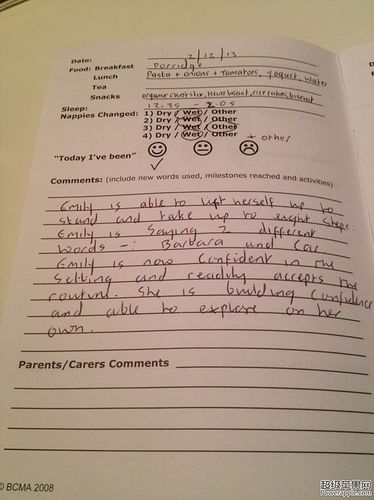 Date: 2/12/13
Food: Breakfast Porridge
Lunch Pasta + onions + Tomatoes, yogurt, water
Tea
Snacks organic carrot star, Heart biscuit, rice cakes, biscuit
Sleep: 12.35 - 2.05
Nappies Changed: 1) Dry / Wet / Other
2) Dry / Wet / Other
3) Dry / Wet / Other
4) Dry / Wet / Other + other
"Today I've been"
Comments: (include new words used, milestones reached and activities)
Emily is able to lift herself up to
stand and take up to eight steps.
Emily is saying 2 different
words -: Barbara and Car
Emily is now confident in the
setting and readily accepts the
routine. She is building confidence
and able to explore on her
own.
Parents/Carers Comments
© BCMA 2008
超级苹果网
Powerapple.com